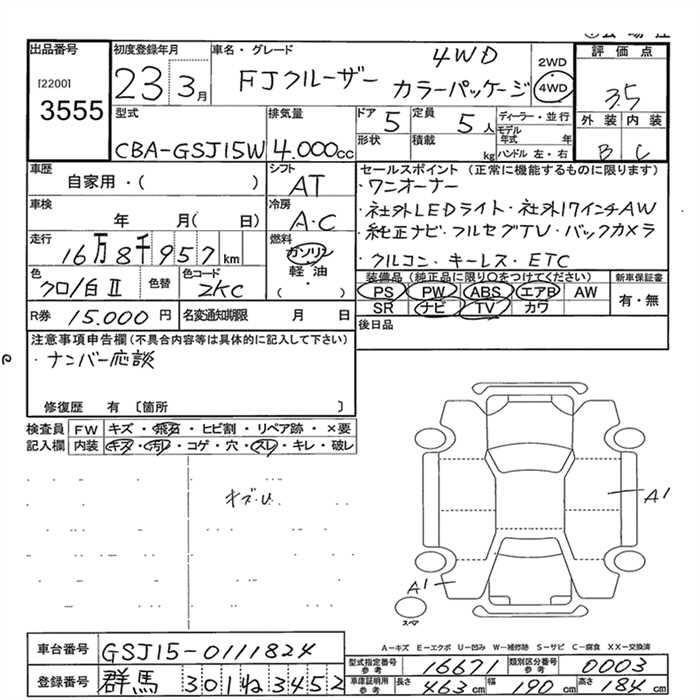 出品番号 初度登録年月 車名・グレード 4WD 2WD 評価点
[2200] 23 3月 FJクルーザー カラーパッケージ 4WD 3.5
3555 型式 排気量 ドア 5 定員 5人 ディーラー・並行 外装 内装
CBA-GSJ15W 4.000cc 形状 積載 kg モデル年式 年 ハンドル 左・右 B C
車歴 シフト セールスポイント(正常に機能するものに限ります)
自家用・( ) AT ・ワンオーナー
車検 冷房 ・社外LEDライト・社外17インチAW
年 月( 日) A・C ・純正ナビ・フルセグTV・バックカメラ
走行 燃料 ・クルコン・キーレス・ETC
16万8千957km ガソリン
軽油
( ・ )
色 色替 色コード 装備品(純正品に限り○をつけてください) 新車保証書
クロ/白Ⅱ 2KC PS PW ABS エアB AW 有・無
R券 15.000円 名変通知期限 月 日 SR ナビ TV カワ
後日品
注意事項申告欄(不具合内容等は具体的に記入して下さい)
・ナンバー応談
修復歴 有 〔箇所 〕
検査員 FW キズ・飛石・ヒビ割・リペア跡・×要
記入欄 内装 キズ・汚レ・コゲ・穴・スレ・キレ・破レ
キズ・U
A1
A1
スペア
A-キズ E-エクボ U-凹み W-補修跡 S-サビ C-腐食 XX-交換済
車台番号 GSJ15-0111824
型式指定番号 参考 16671 類別区分番号 参考 0003
登録番号 群馬 301ね3452 車庫証明用 参考 長さ 463cm 幅 190cm 高さ 184cm